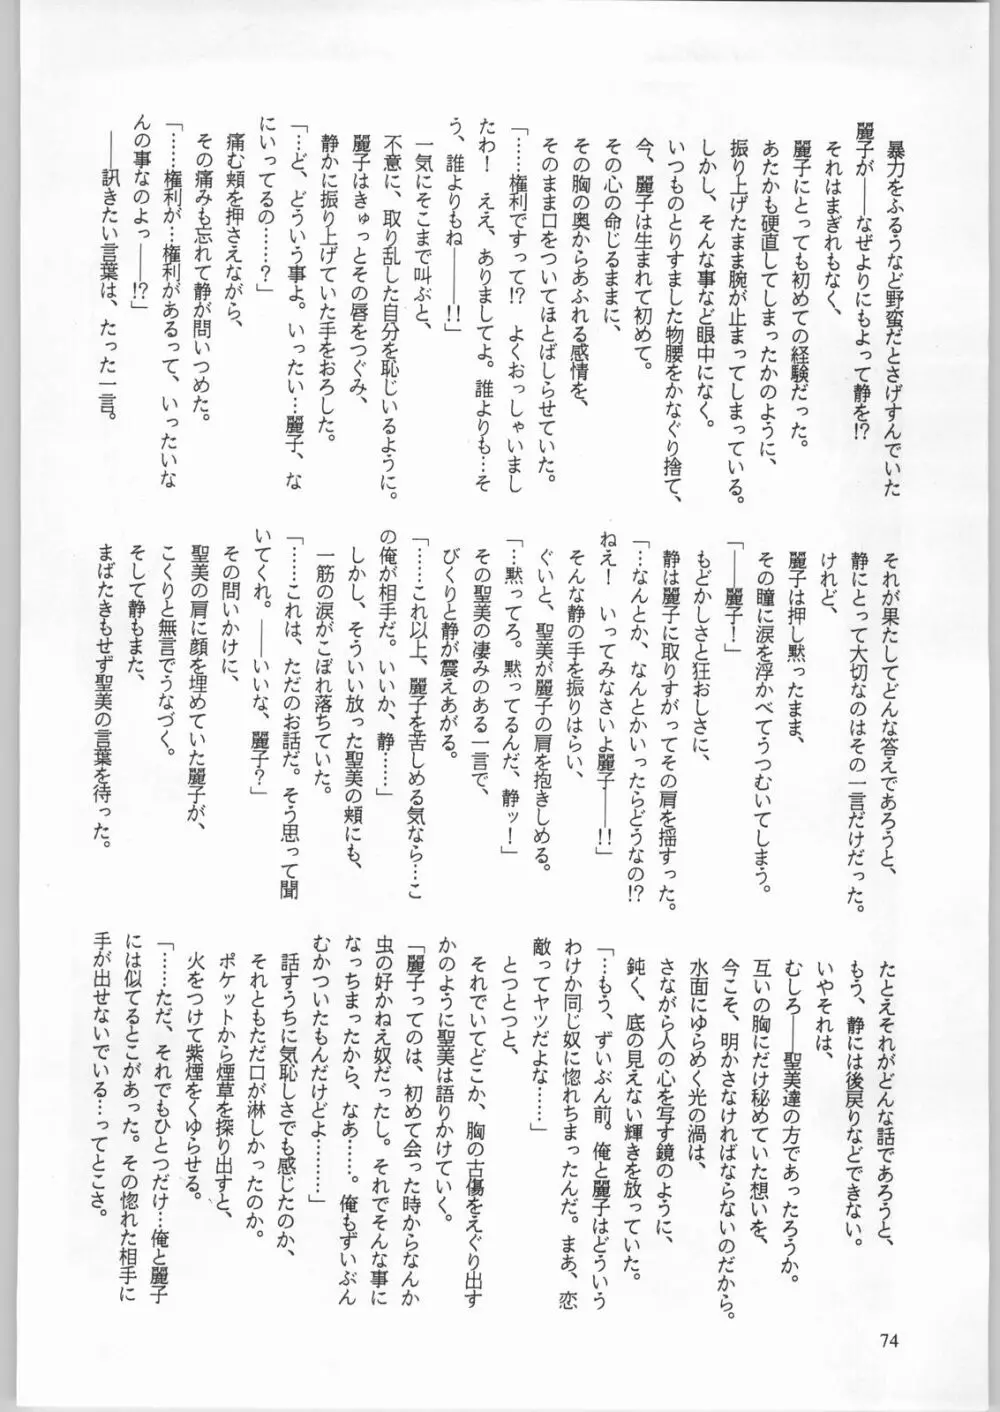 暴力をふるうなど野蛮だとさげすんでいた
麗子が――なぜよりにもよって静を!?
それはまぎれもなく、
麗子にとっても初めての経験だった。
あたかも硬直してしまったかのように、
振り上げたまま腕が止まってしまっている。
しかし、そんな事など眼中になく。
いつものとりすました物腰をかなぐり捨て、
今、麗子は生まれて初めて。
その心の命じるままに、
その胸の奥からあふれる感情を、
そのまま口をついてほとばしらせていた。
「……権利ですって!? よくおっしゃいまし
たわ! ええ、ありましてよ。誰よりも…そ
う、誰よりもね――!!」
一気にそこまで叫ぶと、
不意に、取り乱した自分を恥じいるように。
麗子はきゅっとその唇をつぐみ、
静かに振り上げていた手をおろした。
「…ど、どういう事よ。いったい…麗子、な
にいってるの……?」
痛む頬を押さえながら、
その痛みも忘れて静が問いつめた。
「……権利が…権利があるって、いったいな
んの事なのよっ――!?」
――訊きたい言葉は、たった一言。
それが果たしてどんな答えであろうと、
静にとって大切なのはその一言だけだった。
けれど、
麗子は押し黙ったまま、
その瞳に涙を浮かべてうつむいてしまう。
「――麗子!」
もどかしさと狂おしさに、
静は麗子に取りすがってその肩を揺すった。
「…なんとか、なんとかいったらどうなの!?
ねえ! いってみなさいよ麗子――!!」
そんな静の手を振りはらい、
ぐいと、聖美が麗子の肩を抱きしめる。
「…黙ってろ。黙ってるんだ、静ッ!」
その聖美の凄みのある一言で、
びくりと静が震えあがる。
「……これ以上、麗子を苦しめる気なら…こ
の俺が相手だ。いいか、静……」
しかし、そういい放った聖美の頬にも、
一筋の涙がこぼれ落ちていた。
「……これは、ただのお話だ。そう思って聞
いてくれ。――いいな、麗子?」
その問いかけに、
聖美の肩に顔を埋めていた麗子が、
こくりと無言でうなづく。
そして静もまた、
まばたきもせず聖美の言葉を待った。
たとえそれがどんな話であろうと、
もう、静には後戻りなどできない。
いやそれは、
むしろ――聖美達の方であったろうか。
互いの胸にだけ秘めていた想いを、
今こそ、明かさなければならないのだから。
水面にゆらめく光の渦は、
さながら人の心を写す鏡のように、
鈍く、底の見えない輝きを放っていた。
「…もう、ずいぶん前。俺と麗子はどういう
わけか同じ奴に惚れちまったんだ。まあ、恋
敵ってヤツだよな……」
とつとつと、
それでいてどこか、胸の古傷をえぐり出す
かのように聖美は語りかけていく。
「麗子ってのは、初めて会った時からなんか
虫の好かねえ奴だったし。それでそんな事に
なっちまったから、なあ……。俺もずいぶん
むかついたもんだけどよ………」
話すうちに気恥しさでも感じたのか、
それともただ口が淋しかったのか。
ポケットから煙草を探り出すと、
火をつけて紫煙をくゆらせる。
「……ただ、それでもひとつだけ…俺と麗子
には似てるとこがあった。その惚れた相手に
手が出せないでいる…ってとこさ。
74